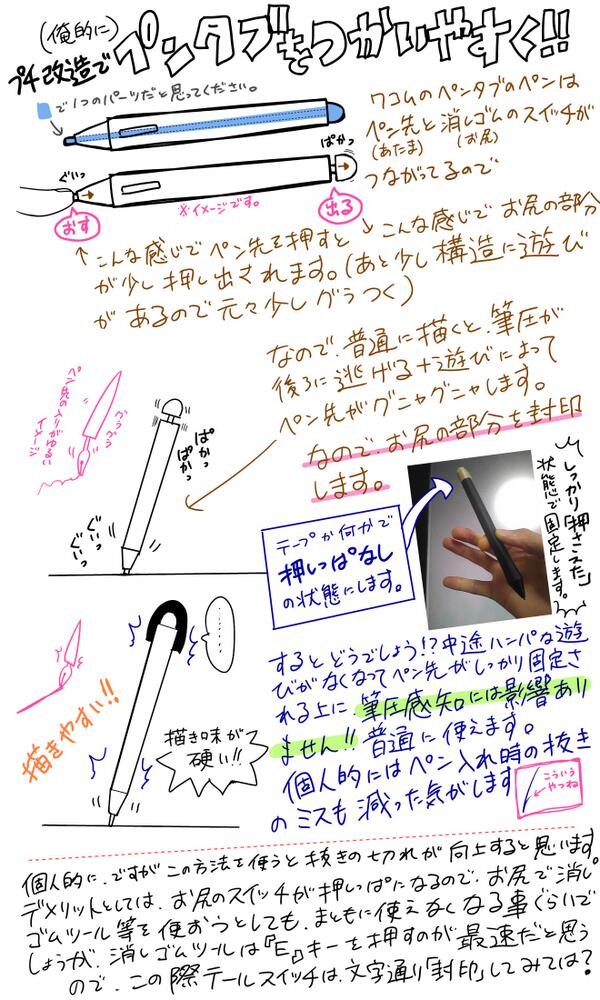 (俺的に)
プチ改造で
ペンタブをつかいやすく!!
で1つのパーツだと思ってください。
ワコムのペンタブのペンは
ペン先と消しゴムのスイッチが
(あたま)
(お尻)
つながってるので
ぐいっ
ぱかっ
おす
※イメージです。
出る
↓こんな感じでお尻の部分
↑こんな感じでペン先を押すと
が少し押し出されます。(あと少し構造に遊び
があるので元々少しグラつく)
なので、普通に描くと、筆圧が
後ろに逃げる+遊びによって
ペン先がグニャグニャします。
なので、お尻の部分を封印
します。
ペン先の入りがゆるい
イメージ
グラグラ
ぱかっ
ぱかっ
ぐいっ
ぐいっ
しっかり「押さえた」
状態で固定します。
テープか何かで
押しっぱなし
の状態にします。
するとどうでしょう!?中途ハンパな遊
びがなくなってペン先がしっかり固定さ
れる上に、筆圧感知には影響あり
ません!!普通に使えます。
個人的にはペン入れ時の抜き
のミスも減った気がします
こういう
やつね
描きやすい!!
描き味が
硬い!!
個人的に、ですがこの方法を使うと抜きの切れが向上すると思います。
デメリットとしては、お尻のスイッチが押しっぱになるので、お尻で消し
ゴムツール等を使おうとしても、まともに使えなくなる事ぐらいで
しょうが、消しゴムツールは『E』キーを押すのが最速だと思う
ので、この際テールスイッチは、文字通り「封印」してみては?